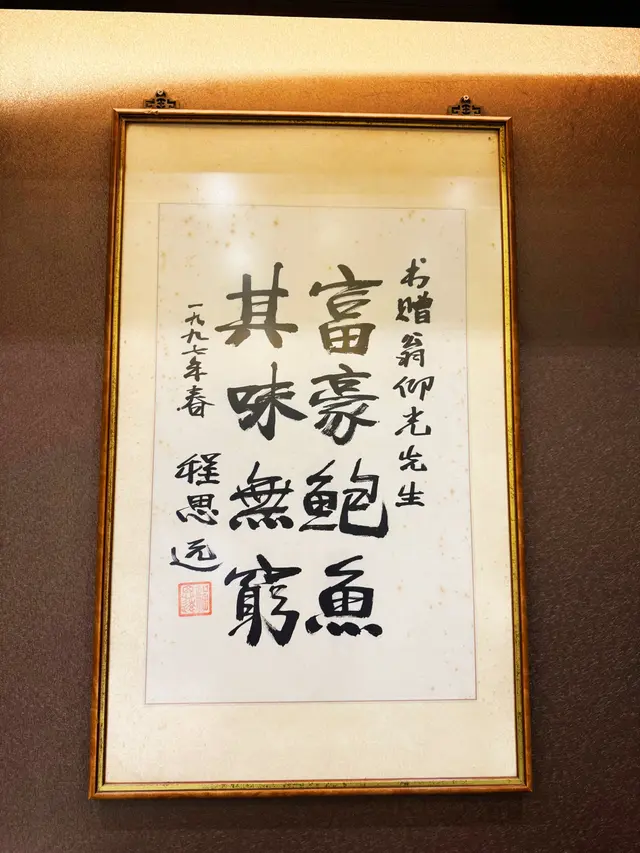 书赠翁仰光先生
富豪鮑魚
其味無窮
一九九七年春
程思远